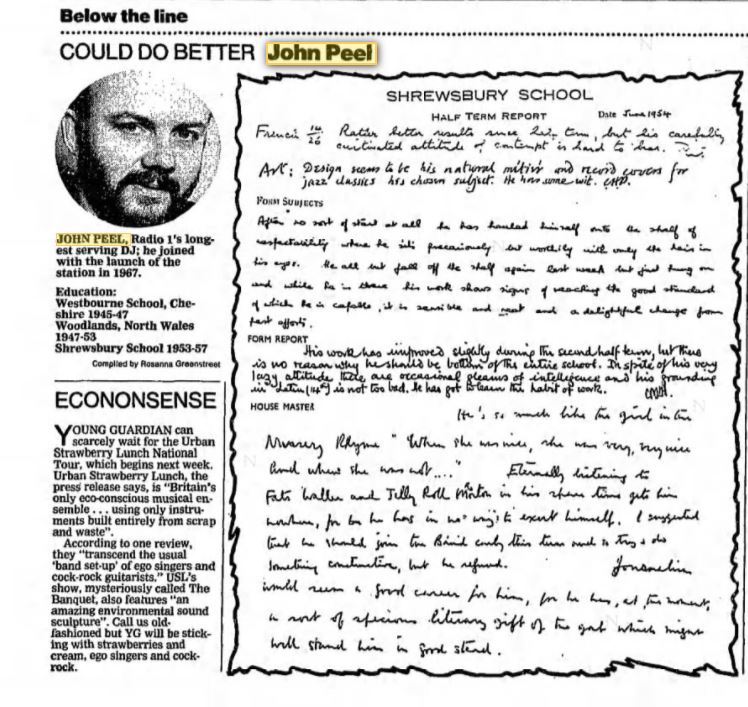 Below the line
COULD DO BETTER John Peel
JOHN PEEL, Radio 1's long-
est serving DJ; he joined
with the launch of the
station in 1967.
Education:
Westbourne School, Che-
shire 1945-47
Woodlands, North Wales
1947-53
Shrewsbury School 1953-57
Compiled by Rosanna Greenstreet
ECONONSENSE
YOUNG GUARDIAN can
scarcely wait for the Urban
Strawberry Lunch National
Tour, which begins next week.
Urban Strawberry Lunch, the
press release says, is "Britain's
only eco-conscious musical en-
semble . . . using only instru-
ments built entirely from scrap
and waste".
According to one review,
they "transcend the usual
'band set-up' of ego singers and
cock-rock guitarists." USL's
show, mysteriously called The
Banquet, also features "an
amazing environmental sound
sculpture". Call us old-
fashioned but YG will be stick-
ing with strawberries and
cream, ego singers and cock-
rock.
SHREWSBURY SCHOOL
HALF TERM REPORT Date June 1954
French 14/26 Rather better results since last term, but his carefully
cultivated attitude of contempt is hard to bear.
Art: Design seems to be his natural métier and record covers for
jazz classics his chosen subject. He has some wit.
FORM SUBJECTS
After no sort of start at all he has hauled himself onto the shelf of
respectability where he sits precariously but worthily with only the hair in
his eyes. He all but fell off the shelf again last week but just hung on
and while he is there his work shows signs of reaching the good standard
of which he is capable, it is sensible and neat and a delightful change from
past efforts.
FORM REPORT
His work has improved slightly during the second half term, but there
is no reason why he should be bottom of the entire school. In spite of his very
lazy attitude there are occasional gleams of intelligence and his grounding
in Latin (14th) is not too bad. He has got to learn the habit of work.
HOUSE MASTER
He's so much like the girl in the
Nursery Rhyme "When she was nice, she was very, very nice
And when she was not...." Eternally listening to
Fats Waller and Jelly Roll Morton in his spare time gets him
nowhere, for he has in no way to exert himself. I suggested
that he should join the Band early this term and to try & do
something constructive, but he refused. Journalism
would seem a good career for him, for he has, at the moment,
a sort of specious literary gift of the gab which might
well stand him in good stead.